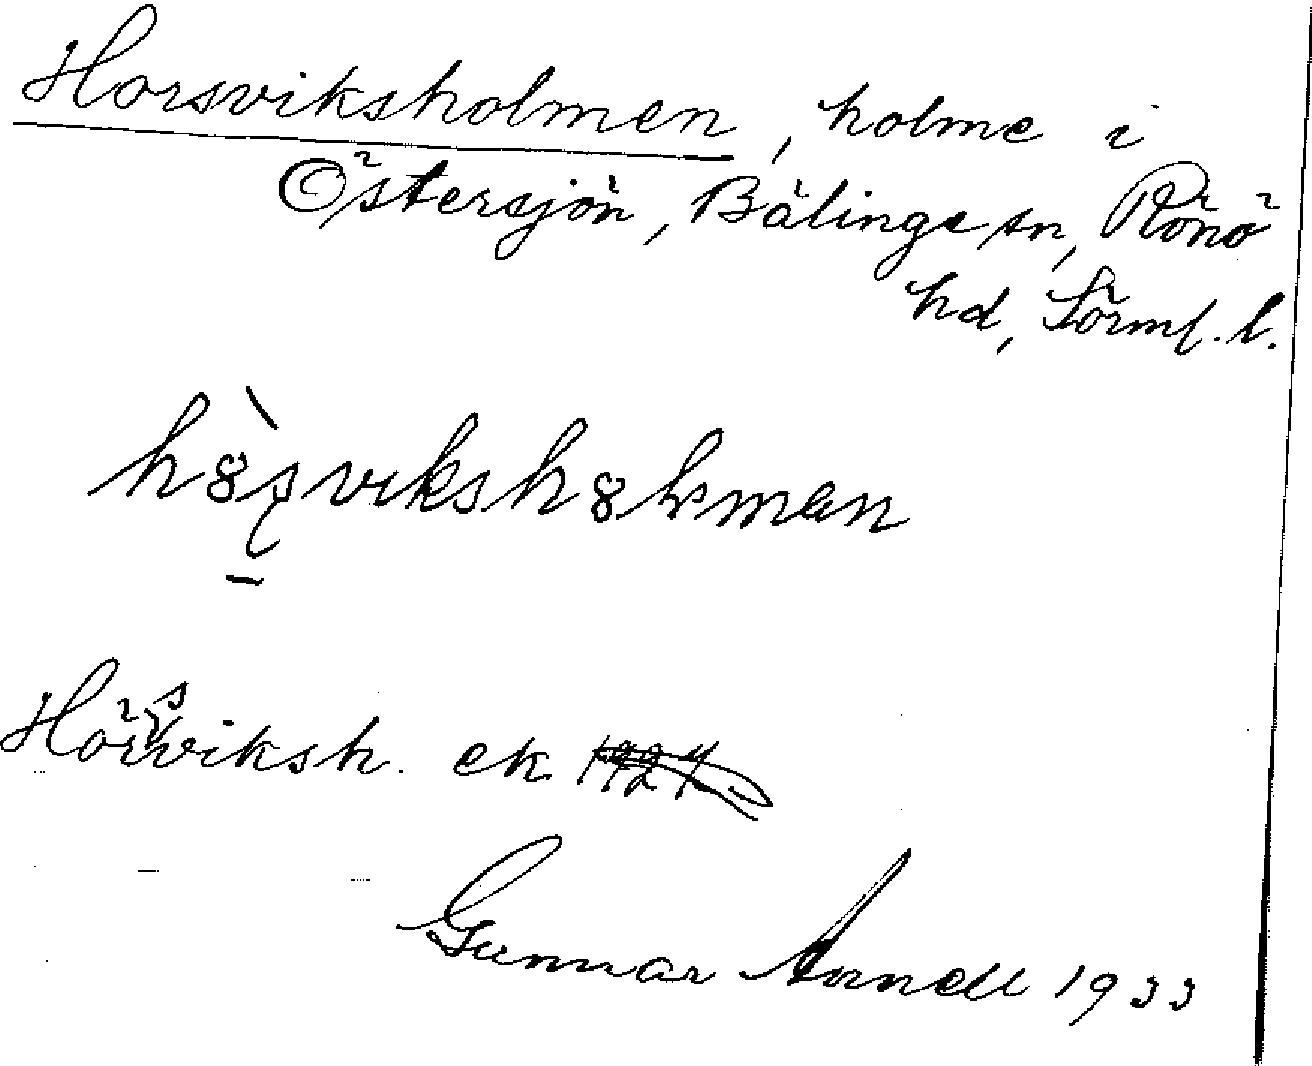 Horsviksholmen, holme i
Östersjön, Bälinge sn, Rönö
hd, Sörml. l.
Hörsviksh. ek 1924
Gunnar Arnell 1933